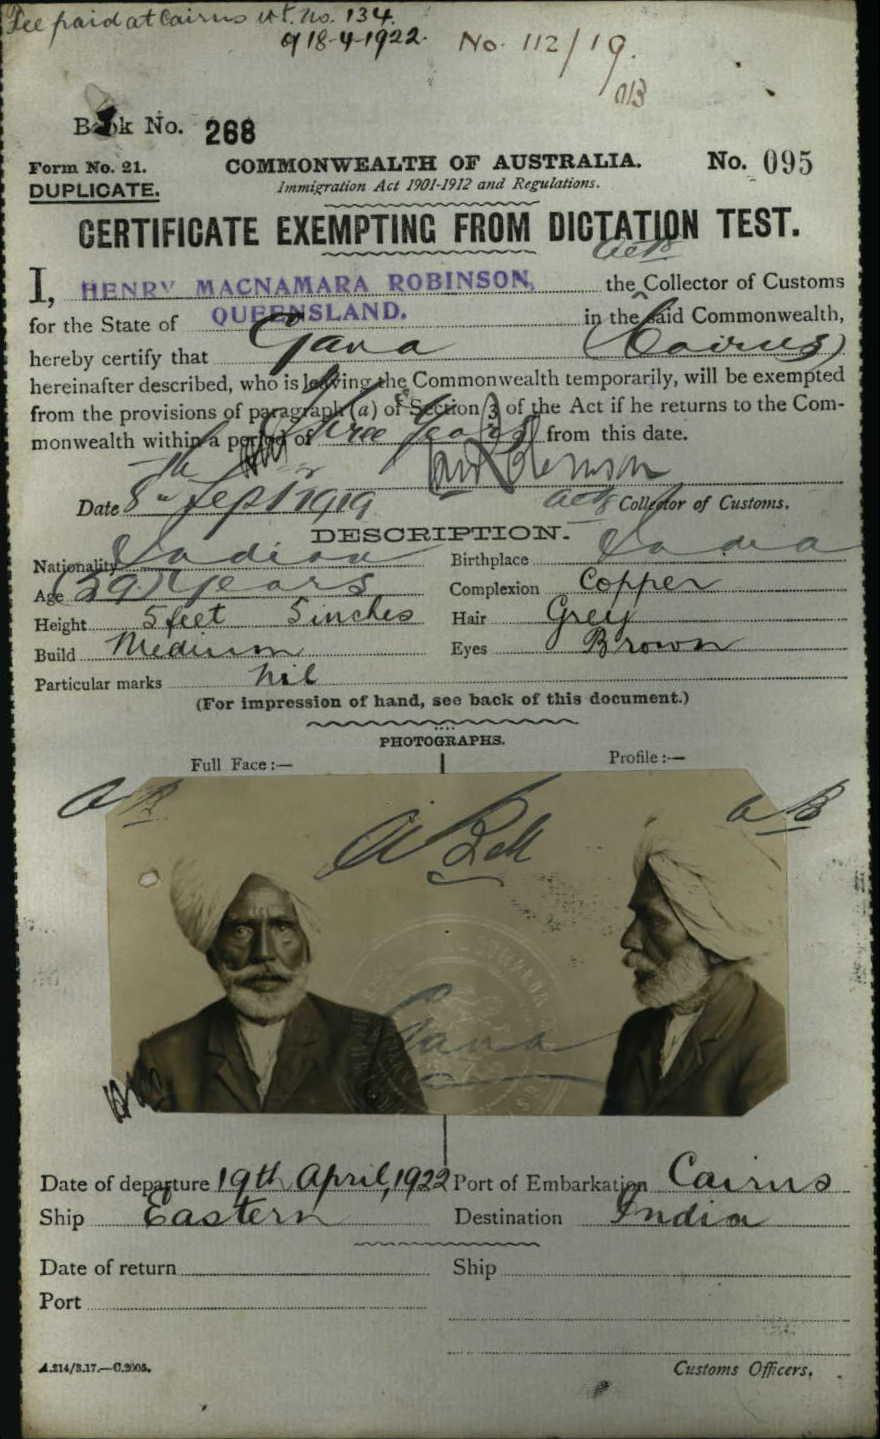 Fee paid at Cairns
No. 134.
of 18-4-1922.
No. 112/19.
Book No. 268
Form No. 21.
COMMONWEALTH OF AUSTRALIA.
No. 095
DUPLICATE.
Immigration Act 1901-1912 and Regulations.
CERTIFICATE EXEMPTING FROM DICTATION TEST.
actg
I, HENRY MACNAMARA ROBINSON, the Collector of Customs
for the State of QUEENSLAND. in the said Commonwealth,
hereby certify that Gana (Cairns)
hereinafter described, who is leaving the Commonwealth temporarily, will be exempted
from the provisions of paragraph (a) of Section 3 of the Act if he returns to the Com-
monwealth within a period of Three Years from this date.
Date 8th Sept 1919
actg Collector of Customs.
DESCRIPTION.
Nationality Indian
Birthplace India
Age (59) years
Complexion Copper
Height 5 feet 5 inches
Hair Grey
Build Medium
Eyes Brown
Particular marks nil
(For impression of hand, see back of this document.)
PHOTOGRAPHS.
Full Face :—
Profile :—
Gana
Date of departure 19th April, 1922
Port of Embarkation Cairns
Ship Eastern
Destination India
Date of return
Ship
Port
A.214/3.17.—C.2005.
Customs Officers.